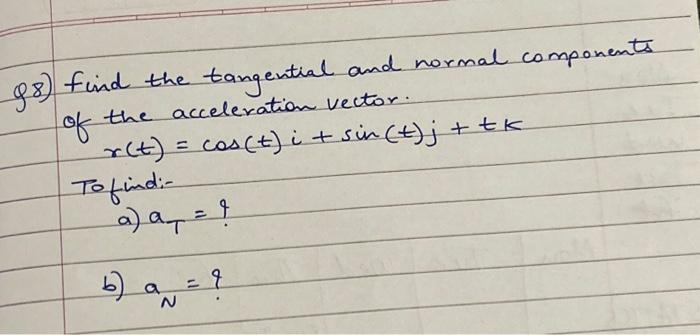 Q8) Find the tangential and normal components
of the acceleration vector.
r(t) = cos(t) i + sin(t) j + t k
To find:-
a) a_T = ?
b) a_N = ?